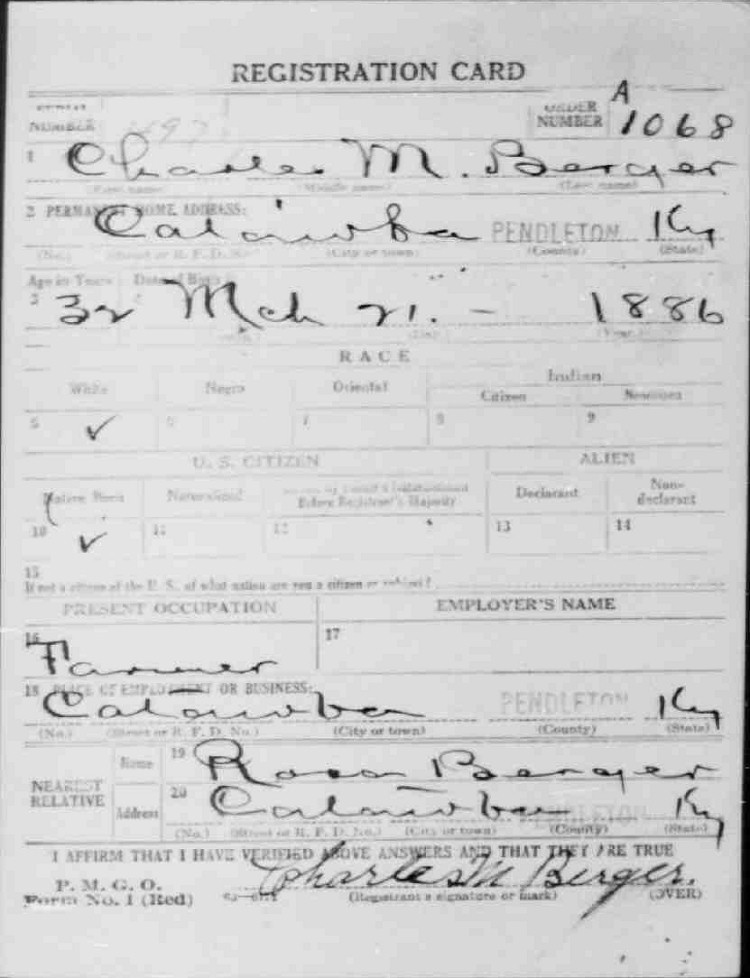 REGISTRATION CARD
SERIAL NUMBER 497 ORDER NUMBER A 1068
1 Charles M. Berger
(First name) (Middle name) (Last name)
2 PERMANENT HOME ADDRESS:
Catawba PENDLETON Ky
(No.) (Street or R. F. D. No.) (City or town) (County) (State)
Age in Years Date of Birth
3 32 4 Mch 21. - 1886
(Day) (Year)
RACE
White Negro Oriental Indian
Citizen Noncitizen
5 ✓ 6 7 8 9
U. S. CITIZEN ALIEN
Native Born Naturalized Citizen by Father's Naturalization Before Registrant's Majority Declarant Non-declarant
10 ✓ 11 12 13 14
15
If not a citizen of the U. S. of what nation are you a citizen or subject?
PRESENT OCCUPATION EMPLOYER'S NAME
16 Farmer 17
18 PLACE OF EMPLOYMENT OR BUSINESS:
Catawba PENDLETON Ky
(No.) (Street or R. F. D. No.) (City or town) (County) (State)
NEAREST RELATIVE Name 19 Rosa Berger
Address 20 Catawba PENDLETON Ky
(No.) (Street or R. F. D. No.) (City or town) (County) (State)
I AFFIRM THAT I HAVE VERIFIED ABOVE ANSWERS AND THAT THEY ARE TRUE
P. M. G. O.
Form No. 1 (Red) Charles M Berger.
(Registrant's signature or mark) (OVER)